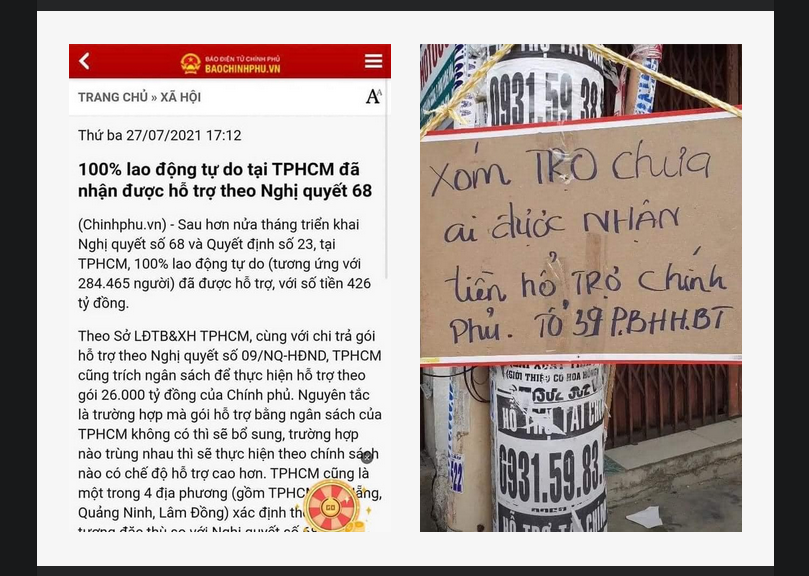 BÁO ĐIỆN TỬ CHÍNH PHỦ
BAOCHINHPHU.VN
TRANG CHỦ » XÃ HỘI
AA
Thứ ba 27/07/2021 17:12
100% lao động tự do tại TPHCM đã
nhận được hỗ trợ theo Nghị quyết 68
(Chinhphu.vn) - Sau hơn nửa tháng triển khai
Nghị quyết số 68 và Quyết định số 23, tại
TPHCM, 100% lao động tự do (tương ứng với
284.465 người) đã được hỗ trợ, với số tiền 426
tỷ đồng.
Theo Sở LĐTB&XH TPHCM, cùng với chi trả gói
hỗ trợ theo Nghị quyết số 09/NQ-HĐND, TPHCM
cũng trích ngân sách để thực hiện hỗ trợ theo
gói 26.000 tỷ đồng của Chính phủ. Nguyên tắc
là trường hợp mà gói hỗ trợ bằng ngân sách của
TPHCM không có thì sẽ bổ sung, trường hợp
nào trùng nhau thì sẽ thực hiện theo chính sách
nào có chế độ hỗ trợ cao hơn. TPHCM cũng là
một trong 4 địa phương (gồm
Quảng Ninh, Lâm Đồng) xác định
tượng đặc thù so với Nghị quyết số 68
GO
0931.59
Xóm TRỌ chưa
ai được NHẬN
tiền hổ TRỢ chính
Phủ. TỔ 39 P.BHH.BT
(GIỚI THIỆU CÓ HOA HỒNG)
HỖ TRỢ TÀI
0931.59.83
HỖ TRỢ
522